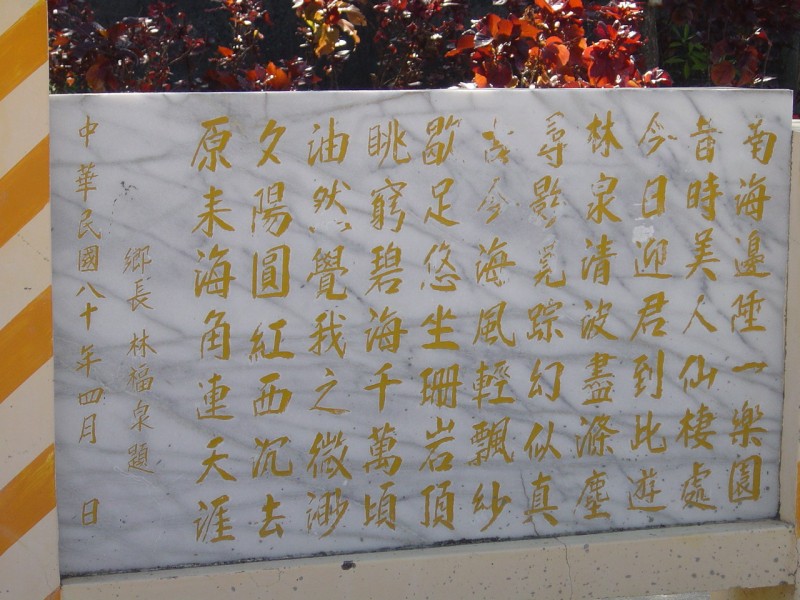 南海邊陲一樂園
昔時美人仙棲處
今日迎君到此遊
林泉清波盡滌塵
尋影覓踪幻似真
今海風輕飄紗
歇足悠坐珊岩頂
眺窮碧海千萬頃
油然覺我之微渺
夕陽圓紅西沉去
原来海角連天涯
鄉長 林福泉 題
中華民國八十年四月 日